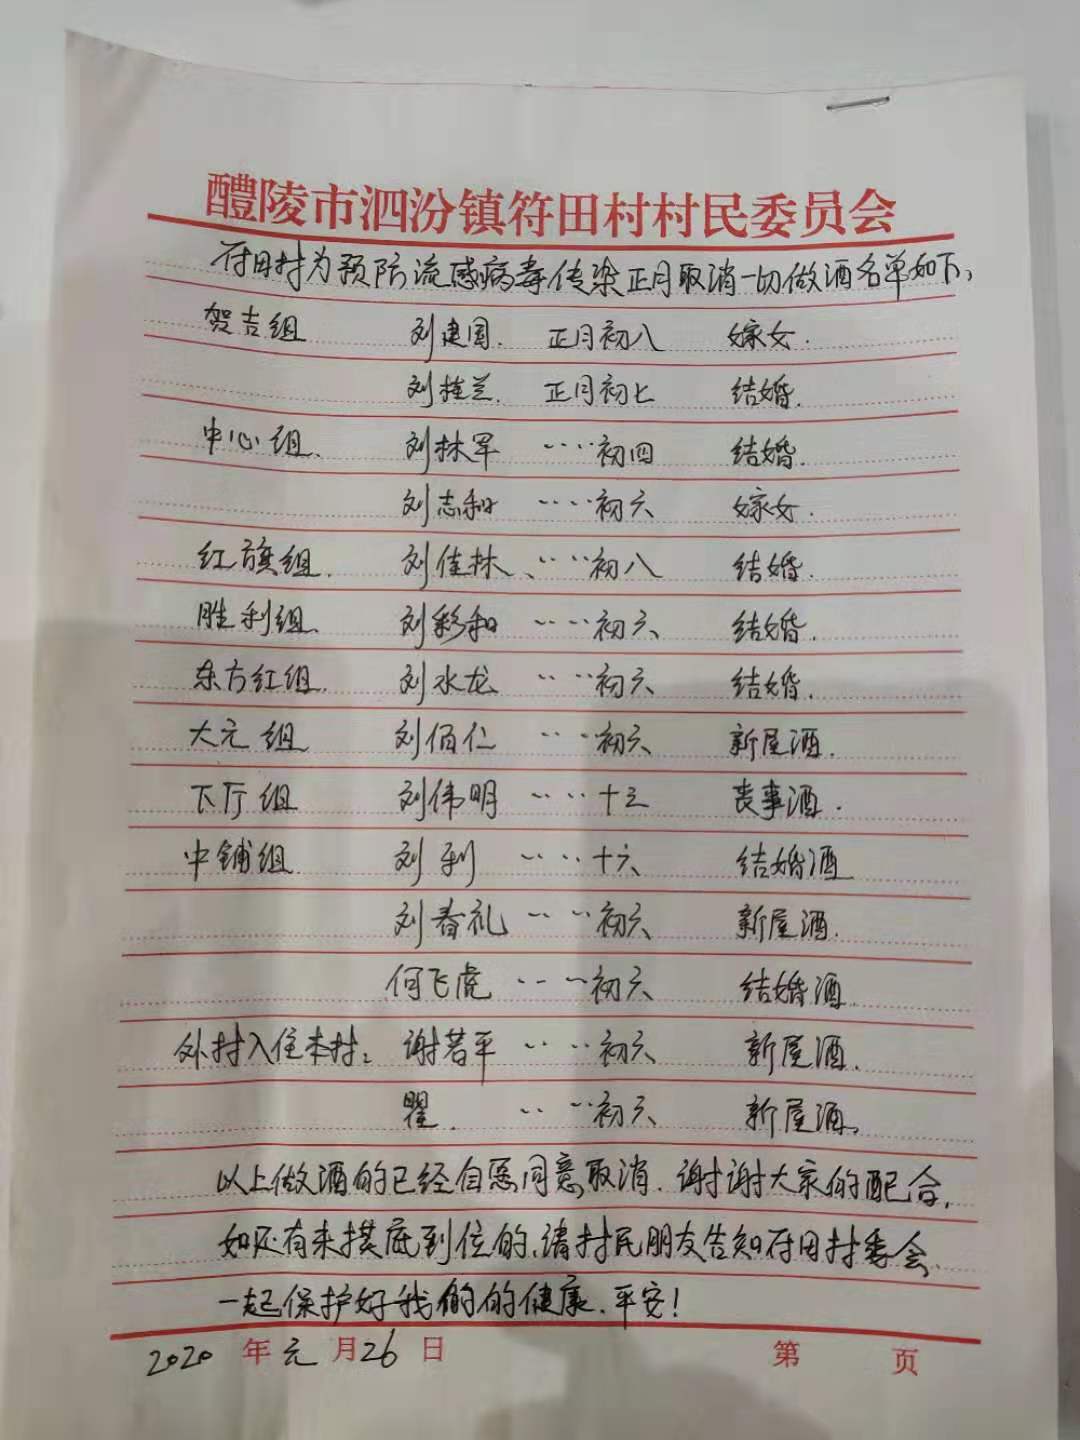 醴陵市泗汾镇符田村村民委员会
付田村为预防流感病毒传染正月取消一切做酒名单如下:
贺吉组 刘建国. 正月初八 嫁女.
刘桂兰. 正月初七 结婚.
中心组. 刘林军 ‥‥初四 结婚.
刘志和 ‥‥初六 嫁女.
红旗组. 刘佳林、‥‥初八 结婚.
胜利组. 刘彩和 ‥‥初六 结婚.
东方红组. 刘水龙 ‥‥初六 结婚.
大元组 刘佰仁 ‥‥初六 新屋酒.
下厅组 刘伟明 ‥‥十三 丧事酒.
中铺组. 刘利 ‥‥十六 结婚酒
刘春礼 ‥‥初六 新屋酒.
何飞虎 ‥‥初六 结婚酒.
外村入住本村: 谢若平 ‥‥初六 新屋酒.
瞿. ‥‥初六 新屋酒.
以上做酒的已经自愿同意取消.谢谢大家的配合.
如还有未摸底到位的.请村民朋友告知付田村委会.
一起保护好我们的健康.平安!
2020年元月26日 第 页